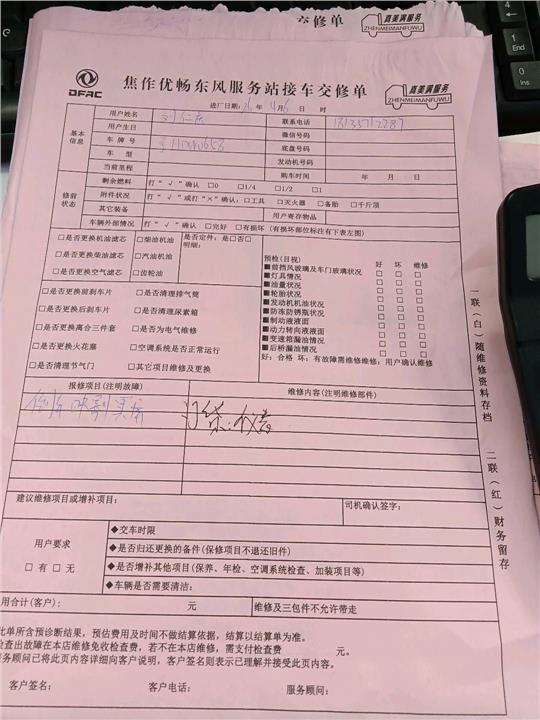 交修单
真美满服务
ZHENMEIMANFUWU
DFAC
焦作优畅东风服务站接车交修单
真美满服务
ZHENMEIMANFUWU
进厂日期: 年 4月6日 时
基本信息
用户姓名 刘 联系电话
用户生日 微信号码
车牌号 底盘号码
车型 发动机号码
当前里程 购车时间 年 月 日
修前状态
剩余燃料 打“√”确认 □0 □1/4 □1/2 □1
附件状况 打“√”或打“×”确认:□工具 □灭火器 □备胎 □千斤顶
其它装备 用户寄存物品
车辆外部情况 打“√”确认 □完好 □有损坏(有损坏部位标注有下表左图)
□是否更换机油滤芯 □柴油机油 是否定件:是□否□
□是否更换柴油滤芯 □汽油机油 明细:
□是否更换空气滤芯 □齿轮油
□是否更换前刹车片 □是否清理排气筒
□是否更换后刹车片 □是否清理尿素箱
□是否更换离合三件套 □是否为电气维修
□是否更换火花塞 □空调系统是否正常运行
□是否清理节气门 □其它项目维修及更换
预检(目视) 好 坏 维修
■前挡风玻璃及车门玻璃状况 □ □ □
■灯具情况 □ □ □
■油量状况 □ □ □
■轮胎状况 □ □ □
■发动机机油状况 □ □ □
■防冻防锈瓶状况 □ □ □
■制动液液面 □ □ □
■动力转向液液面 □ □ □
■变速箱漏油情况 □ □ □
■后桥漏油情况 □ □ □
好:合格 坏:有故障需维修维修:用户确认维修
报修项目(注明故障) 维修内容(注明维修部件)
建议维修项目或增补项目: 司机确认签字:
用户要求
□有 □无
◆交车时限
◆是否归还更换的备件(保修项目不退还旧件)
◆是否增补其他项目(保养、年检、空调系统检查、加装项目等)
◆车辆是否需要清洁:
用合计(客户): 元 维修及三包件不允许带走
此单所含预诊断结果,预估费用及时间不做结算依据,结算以结算单为准。
检查出故障在本店维修免收检查费,若不在本店维修,需支付检查费 元。
服务顾问已将此页内容详细向客户说明,客户签名则表示已理解并接受此页内容。
客户签名: 客户电话: 服务顾问:
一联(白)随维修资料存档 二联(红)财务留存